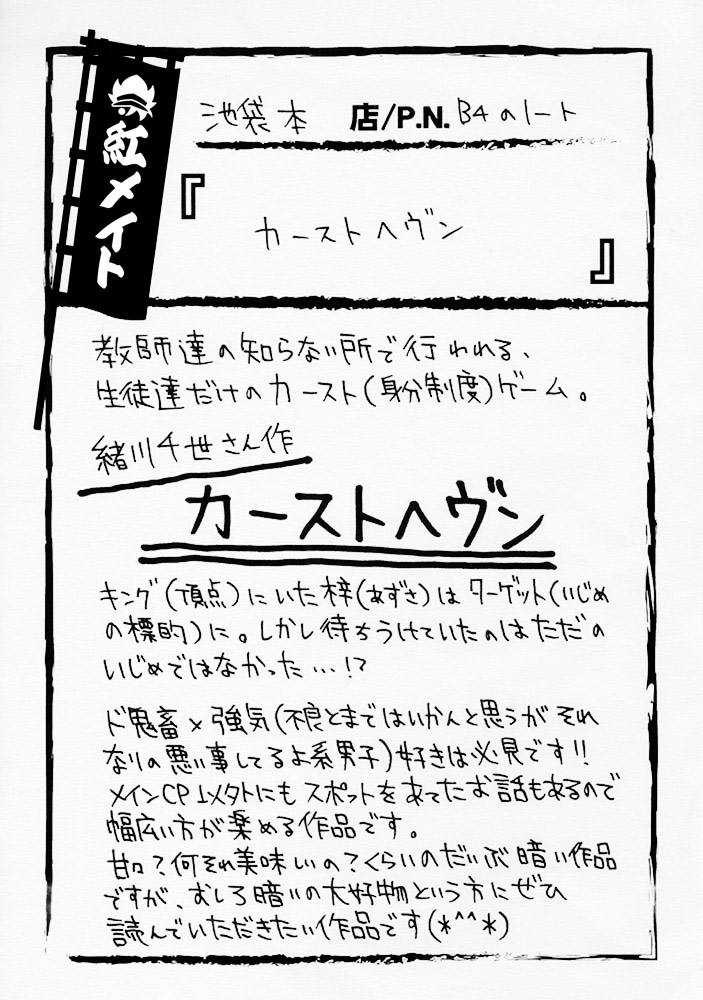 紅メイト
池袋本 店/P.N. B4のノート
『
カーストヘヴン
』
教師達の知らない所で行われる、
生徒達だけのカースト(身分制度)ゲーム。
緒川千世さん作
カーストヘヴン
キング(頂点)にいた梓(あずさ)はターゲット(いじめ
の標的)に。しかし待ちうけていたのはただの
いじめではなかった…!?
ド鬼畜×強気(不良とまではいかんと思うがそれ
なりの悪い事してるよ系男子)好きは必見です!!
メインCP以外にもスポットをあてたお話もあるので
幅広い方が楽める作品です。
甘口?何それ美味しいの?くらいのだいぶ暗い作品
ですが、むしろ暗いの大好物という方にぜひ
読んでいただきたい作品です(*^^*)